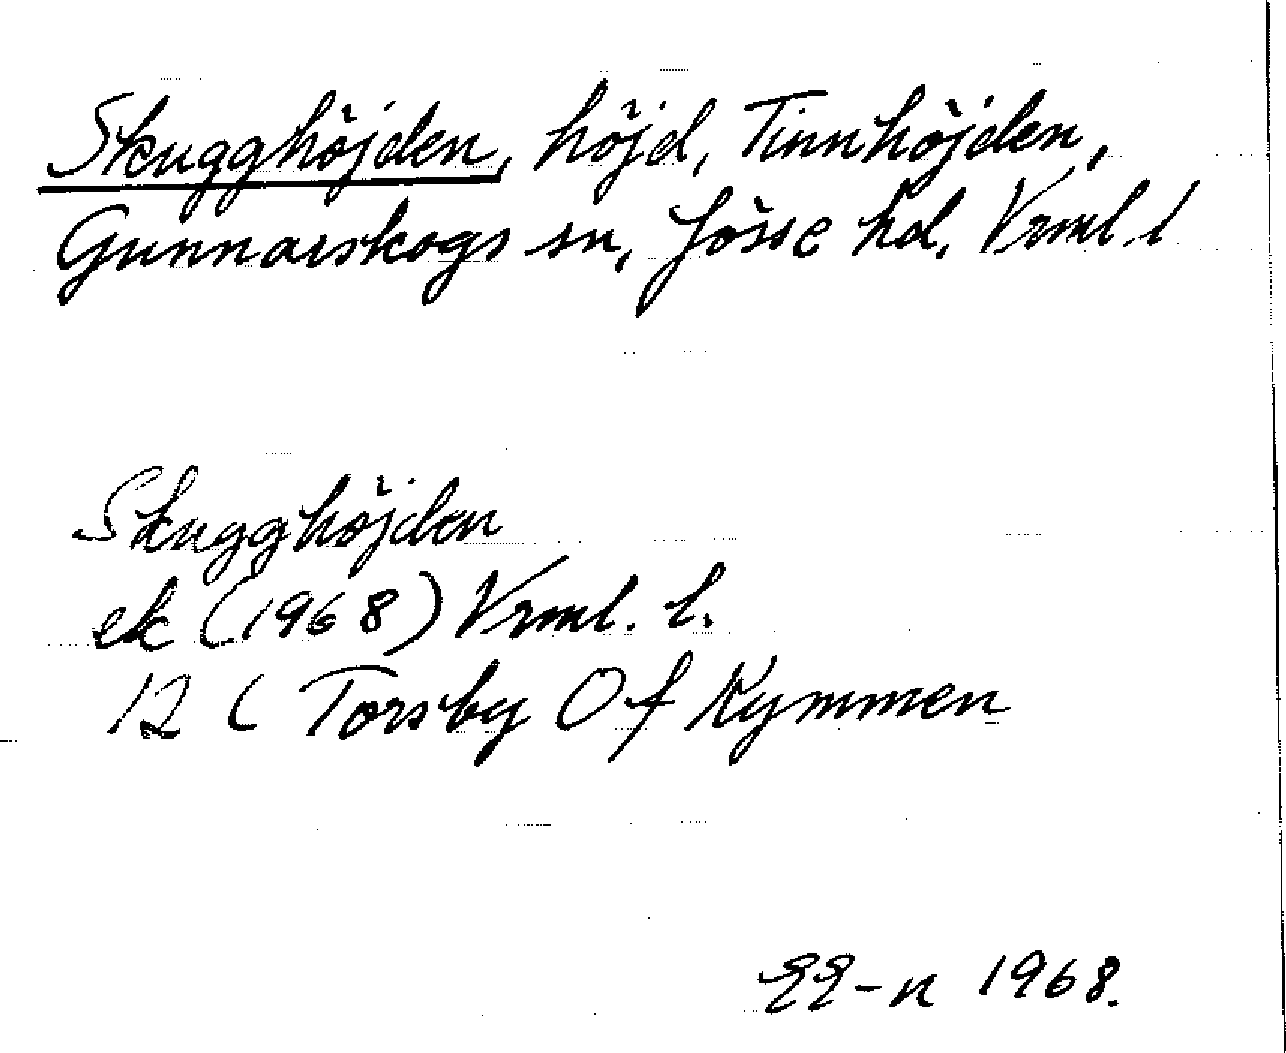 Skugghöjden, höjd, Tinnhöjden,
Gunnarskogs sn, Jösse hd. Vrml. l
Skugghöjden
ek (1968) Vrml. l.
12 C Torsby Of Kymmen
EE-n 1968.